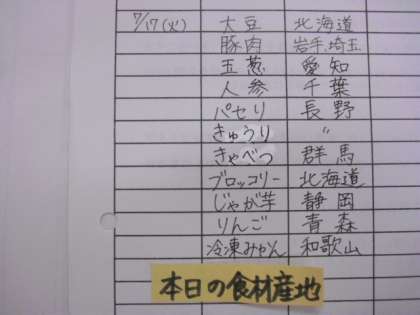 7/17(火) 大豆 北海道
豚肉 岩手、埼玉
玉葱 愛知
人参 千葉
パセリ 長野
きゅうり 〃
きゃべつ 群馬
ブロッコリー 北海道
じゃが芋 静岡
りんご 青森
冷凍みかん 和歌山
本日の食材産地